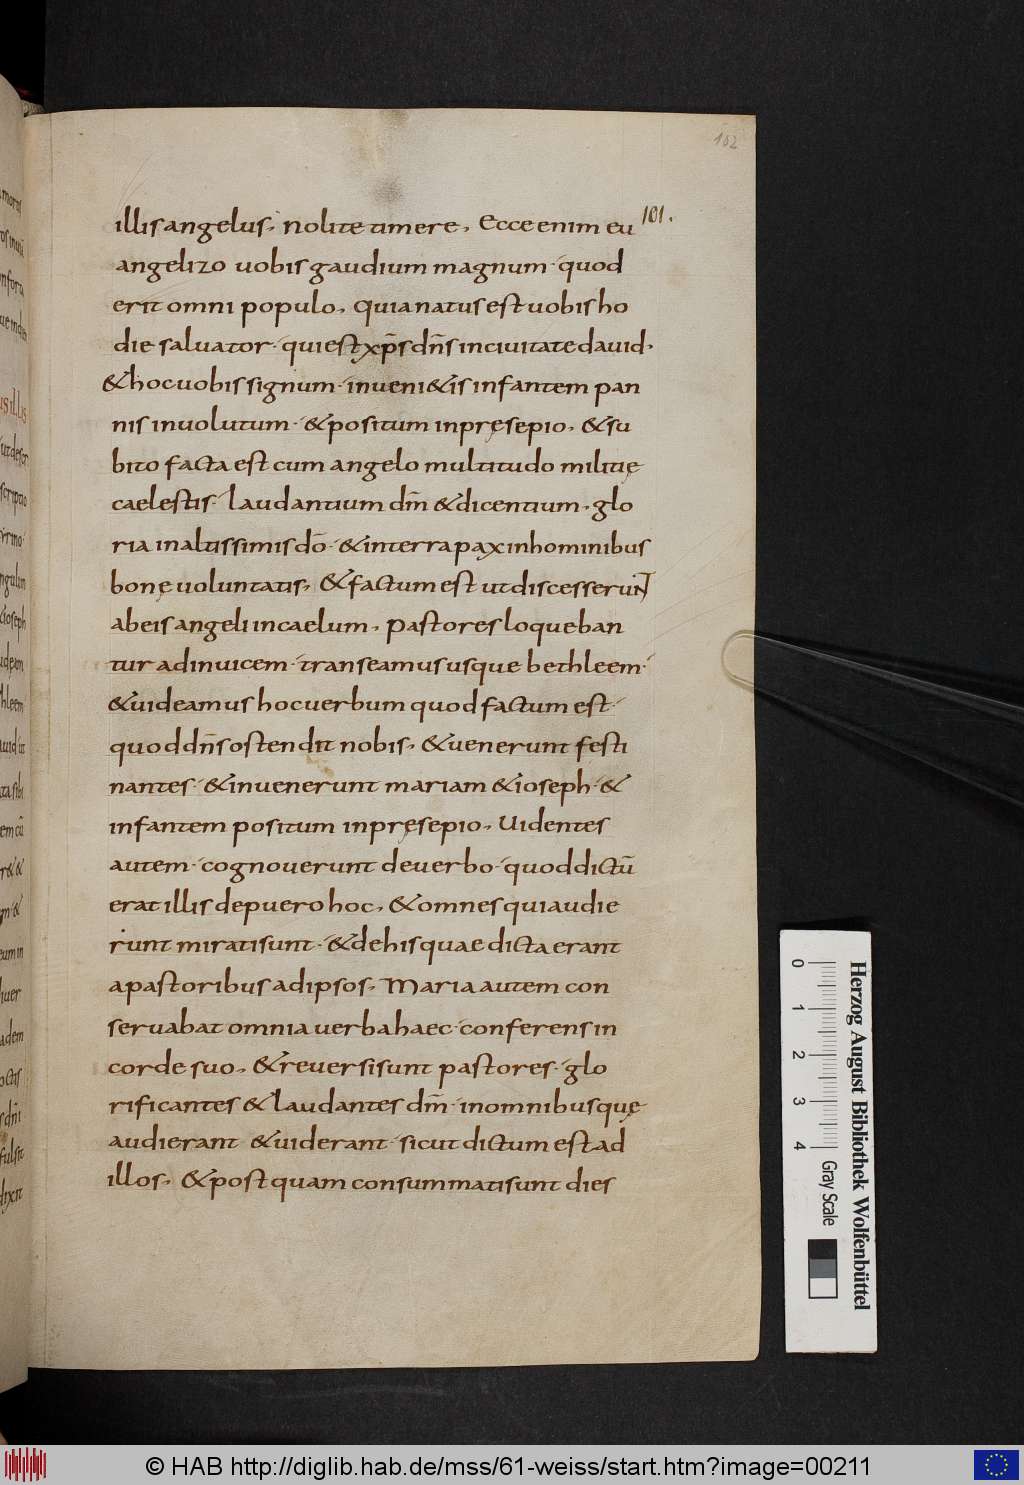 102
illis angelus, Nolite timere, Ecce enim eu 101.
angelizo uobis gaudium magnum· quod
erit omni populo, quia natus est uobis ho
die saluator· qui est xp̄s dn̄s in ciuitate dauid,
& hoc uobis signum· inueni&is infantem pan
nis inuolutum· & positum in pręsepio, & su
bito facta est cum angelo multitudo militię
caelestis· laudantium dm̄ & dicentium, glo
ria in altissimis dō· & in terra pax in hominibus
bonę uoluntatis, & factum est ut discesserunt
ab eis angeli in caelum, pastores loqueban
tur ad inuicem· transeamus usque bethleem·
& uideamus hoc uerbum quod factum est·
quod dn̄s ostendit nobis, & uenerunt festi
nantes· & inuenerunt mariam & ioseph· &
infantem positum in pręsepio, Uidentes
autem· cognouerunt de uerbo· quod dictū
erat illis de puero hoc, & omnes qui audie
runt mirati sunt· & de his quae dicta erant
a pastoribus ad ipsos, Maria autem con
seruabat omnia uerba haec· conferens in
corde suo, & reuersi sunt pastores· glo
rificantes & laudantes dm̄· in omnibus quę
audierant & uiderant· sicut dictum est ad
illos, & postquam consummati sunt dies
0 1 2 3 4 Gray Scale
Herzog August Bibliothek Wolfenbüttel
© HAB http://diglib.hab.de/mss/61-weiss/start.htm?image=00211